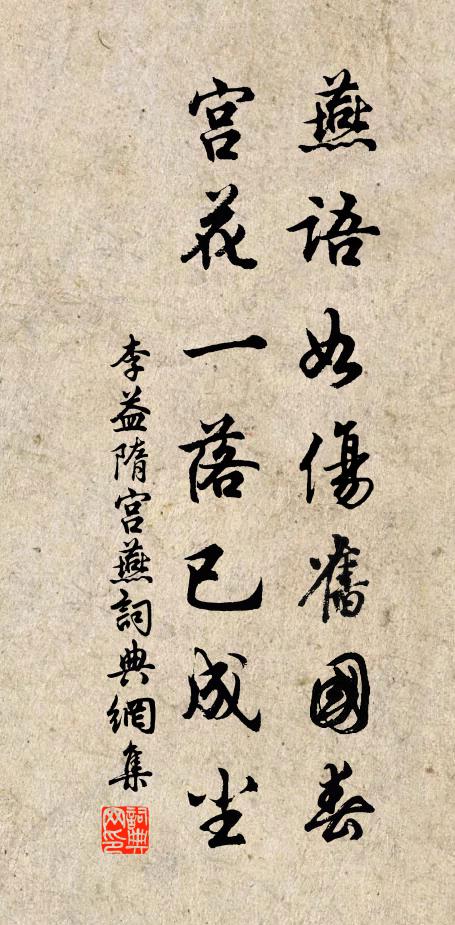 燕語如傷舊國春
宮花一落已成尘
李益隋宮燕詞典網集
詞典網印